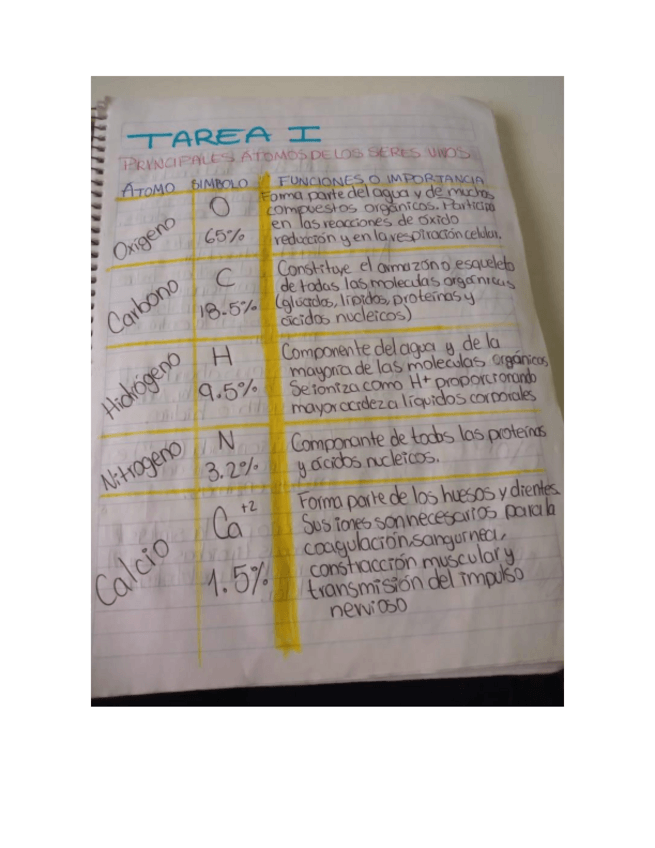 TAREA I
PRINCIPALES ATOMOS DE LOS SERES VIVOS
ATOMO SIMBOLO FUNCIONES O IMPORTANCIA
Oxigeno
O
65%
Forma parte del agua y de muchos
compuestos orgánicos. Participa
en las reacciones de oxido
reducción y en la respiración celular.
Carbono
C
18.5%
Constituye el armazón o esqueleto
de todas las moleculas orgánicas
(glúcidos, lípidos, proteinas y
ácidos nucleicos)
Hidrógeno
H
9.5%
Componente del agua y de la
mayoria de las moleculas orgánicas
Se ioniza como H+ proporcionando
mayor acidez a líquidos corporales
Nitrogeno
N
3.2%
Componante de todas las proteinas
y ácidos nucleicos.
Calcio
Ca+2
1.5%
Forma parte de los huesos y dientes.
Sus iones son necesarios para la
coagulación, sanguinea,
constracción muscular y
transmisión del impulso
nervioso